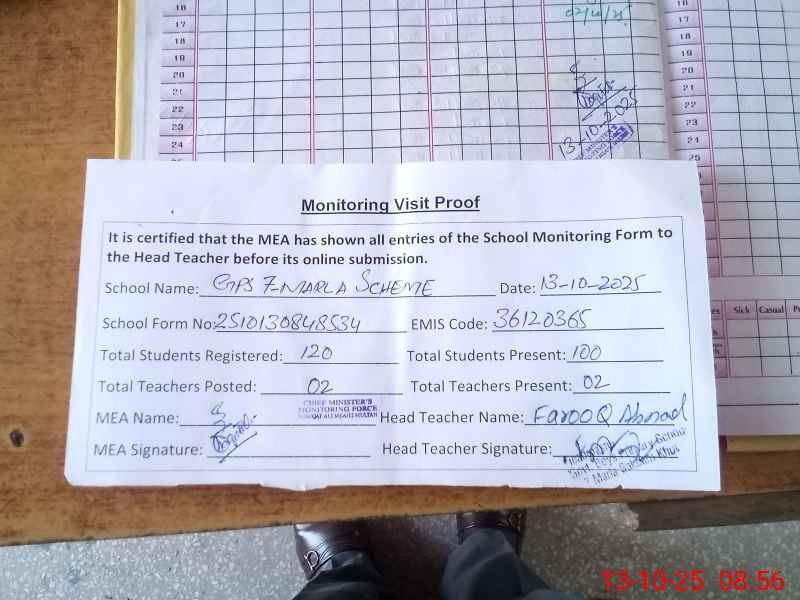 16
17
18
19
20
21
22
23
24
02/10/25
13-10-2025
16
17
18
19
20
21
22
23
24
Sick Casual
Monitoring Visit Proof
It is certified that the MEA has shown all entries of the School Monitoring Form to
the Head Teacher before its online submission.
School Name: GPS 7-MARLA SCHEME Date: 13-10-2025
School Form No: 2510130848534 EMIS Code: 36120365
Total Students Registered: 120 Total Students Present: 100
Total Teachers Posted: 02 Total Teachers Present: 02
CHIEF MINISTER'S
MONITORING FORCE
MEA Name: Head Teacher Name: FAROOQ Ahmad
MEA Signature: Head Teacher Signature:
13-10-25 08:56